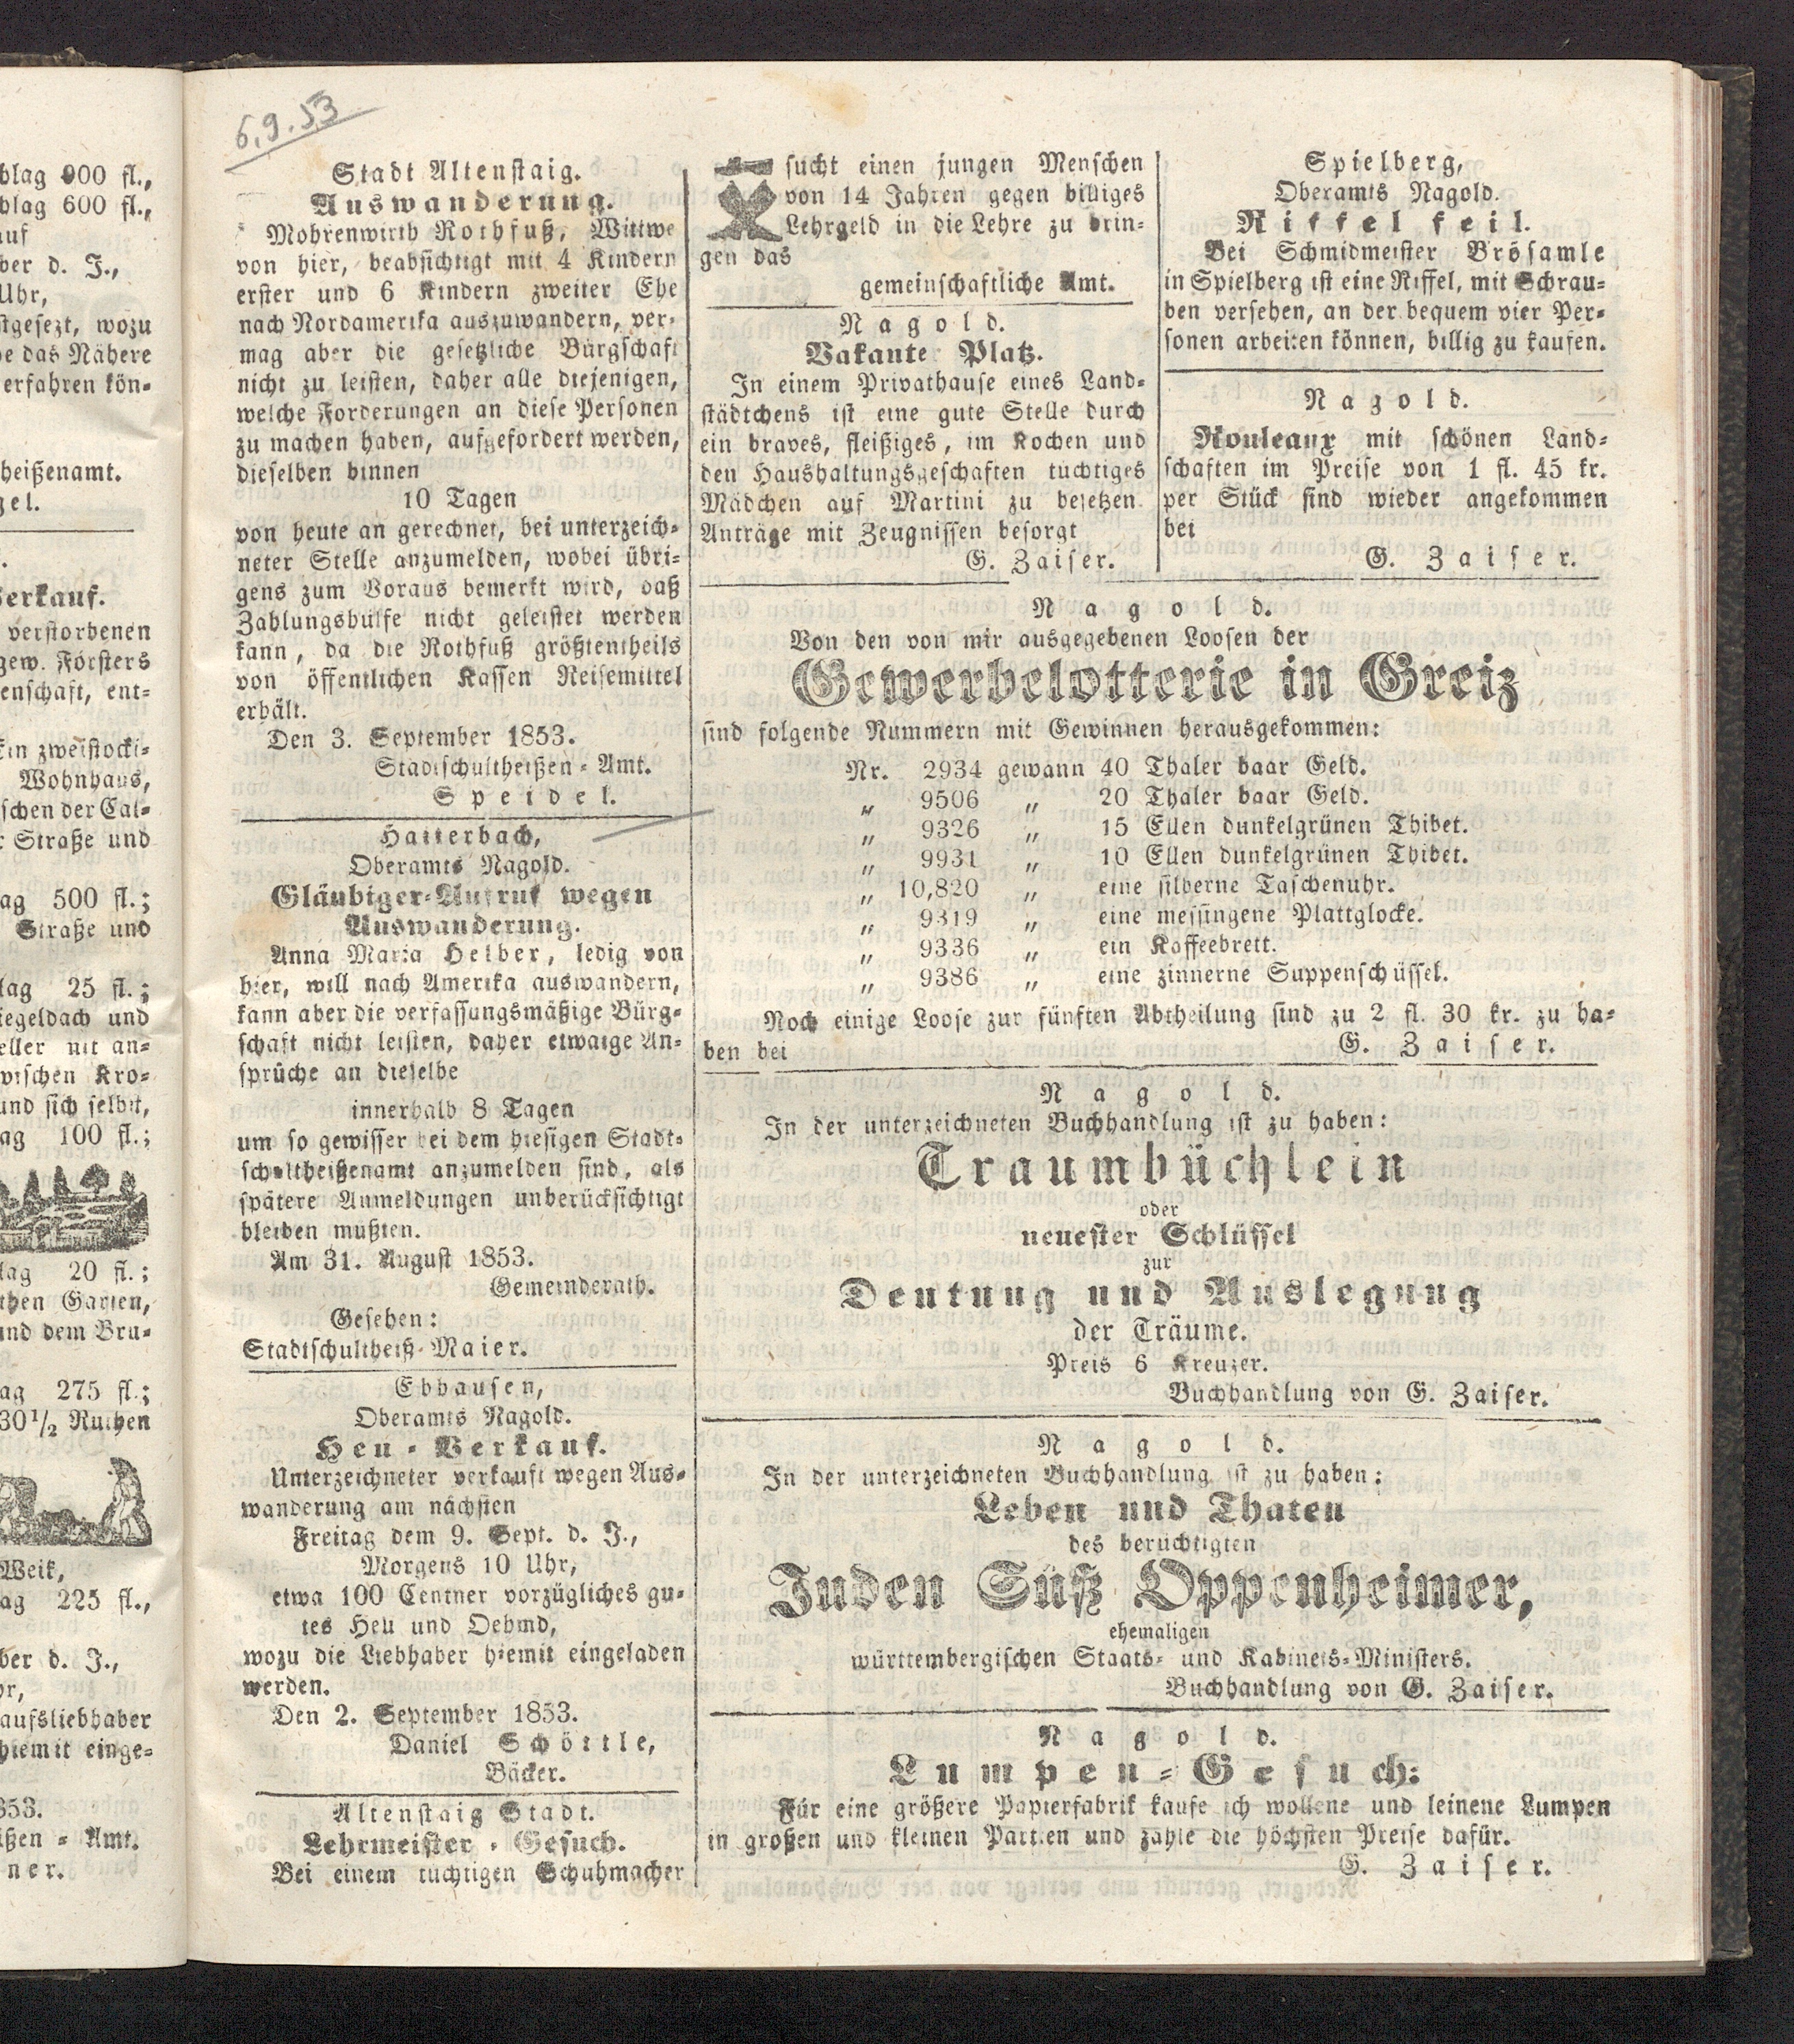 6.9.53
Stadt Altenstaig.
Auswanderung.
Mohrenwirth Rothfuß, Wittwe
von hier, beabsichtigt mit 4 Kindern
erster und 6 Kindern zweiter Ehe
nach Nordamerika auszuwandern, ver-
mag aber die gesetzliche Bürgschaft
nicht zu leisten, daher alle diejenigen,
welche Forderungen an diese Personen
zu machen haben, aufgefordert werden,
dieselben binnen
10 Tagen
von heute an gerechnet, bei unterzeich-
neter Stelle anzumelden, wobei übri-
gens zum Voraus bemerkt wird, daß
Zahlungshülfe nicht geleistet werden
kann, da die Rothfuß größtentheils
von öffentlichen Kassen Reisemittel
erhält.
Den 3. September 1853.
Stadtschultheißen-Amt.
Speidel.
Haiterbach,
Oberamts Nagold.
Gläubiger-Aufruf wegen
Auswanderung.
Anna Maria Helber, ledig von
hier, will nach Amerika auswandern,
kann aber die verfassungsmäßige Bürg-
schaft nicht leisten, daher etwaige An-
sprüche an dieselbe
innerhalb 8 Tagen
um so gewisser bei dem hiesigen Stadt-
schultheißenamt anzumelden sind, als
spätere Anmeldungen unberücksichtigt
bleiben müßten.
Am 31. August 1853.
Gemeinderath.
Gesehen:
Stadtschultheiß Maier.
Ebhausen,
Oberamts Nagold.
Heu-Verkauf.
Unterzeichneter verkauft wegen Aus-
wanderung am nächsten
Freitag dem 9. Sept. d. J.,
Morgens 10 Uhr,
etwa 100 Centner vorzügliches gu-
tes Heu und Oehmd,
wozu die Liebhaber hiemit eingeladen
werden.
Den 2. September 1853.
Daniel Schöttle,
Bäcker.
Altenstaig Stadt.
Lehrmeister-Gesuch.
Bei einem tüchtigen Schuhmacher
sucht einen jungen Menschen
von 14 Jahren gegen billiges
Lehrgeld in die Lehre zu brin-
gen das
gemeinschaftliche Amt.
Nagold.
Vakante Platz.
In einem Privathause eines Land-
städtchens ist eine gute Stelle durch
ein braves, fleißiges, im Kochen und
den Haushaltungsgeschäften tüchtiges
Mädchen auf Martini zu besetzen
Anträge mit Zeugnissen besorgt
G. Zaiser.
Spielberg,
Oberamts Nagold.
Riffel feil.
Bei Schmidmeister Brösamle
in Spielberg ist eine Riffel, mit Schrau-
ben versehen, an der bequem vier Per-
sonen arbeiten können, billig zu kaufen.
Nagold.
Rouleaux mit schönen Land-
schaften im Preise von 1 fl. 45 kr.
per Stück sind wieder angekommen
bei
G. Zaiser.
Nagold.
Von den von mir ausgegebenen Loosen der
Gewerbelotterie in Greiz
sind folgende Nummern mit Gewinnen herausgekommen:
Nr. 2934 gewann 40 Thaler baar Geld.
" 9506 " 20 Thaler baar Geld.
" 9326 " 15 Ellen dunkelgrünen Thibet.
" 9931 " 10 Ellen dunkelgrünen Thibet.
" 10,820 " eine silberne Taschenuhr.
" 9319 " eine messingene Plattglocke.
" 9336 " ein Kaffeebrett.
" 9386 " eine zinnerne Suppenschüssel.
Noch einige Loose zur fünften Abtheilung sind zu 2 fl. 30 kr. zu ha-
ben bei G. Zaiser.
Nagold.
In der unterzeichneten Buchhandlung ist zu haben:
Traumbüchlein
oder
neuester Schlüssel
zur
Deutung und Auslegung
der Träume.
Preis 6 Kreuzer.
Buchhandlung von G. Zaiser.
Nagold.
In der unterzeichneten Buchhandlung ist zu haben:
Leben und Thaten
des berüchtigten
Juden Süß Oppenheimer,
ehemaligen
württembergischen Staats- und Kabinets-Ministers.
Buchhandlung von G. Zaiser.
Nagold.
Lumpen-Gesuch:
Für eine größere Papierfabrik kaufe ich wollene und leinene Lumpen
in großen und kleinen Partien und zahle die höchsten Preise dafür.
G. Zaiser.